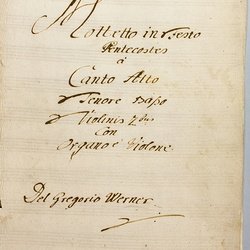 Mottetto in Festo
Pentecostes
à
Canto Alto
Tenore Basso
Violinis 2bus
con
Organo e Violone.
Del Gregorio Werner